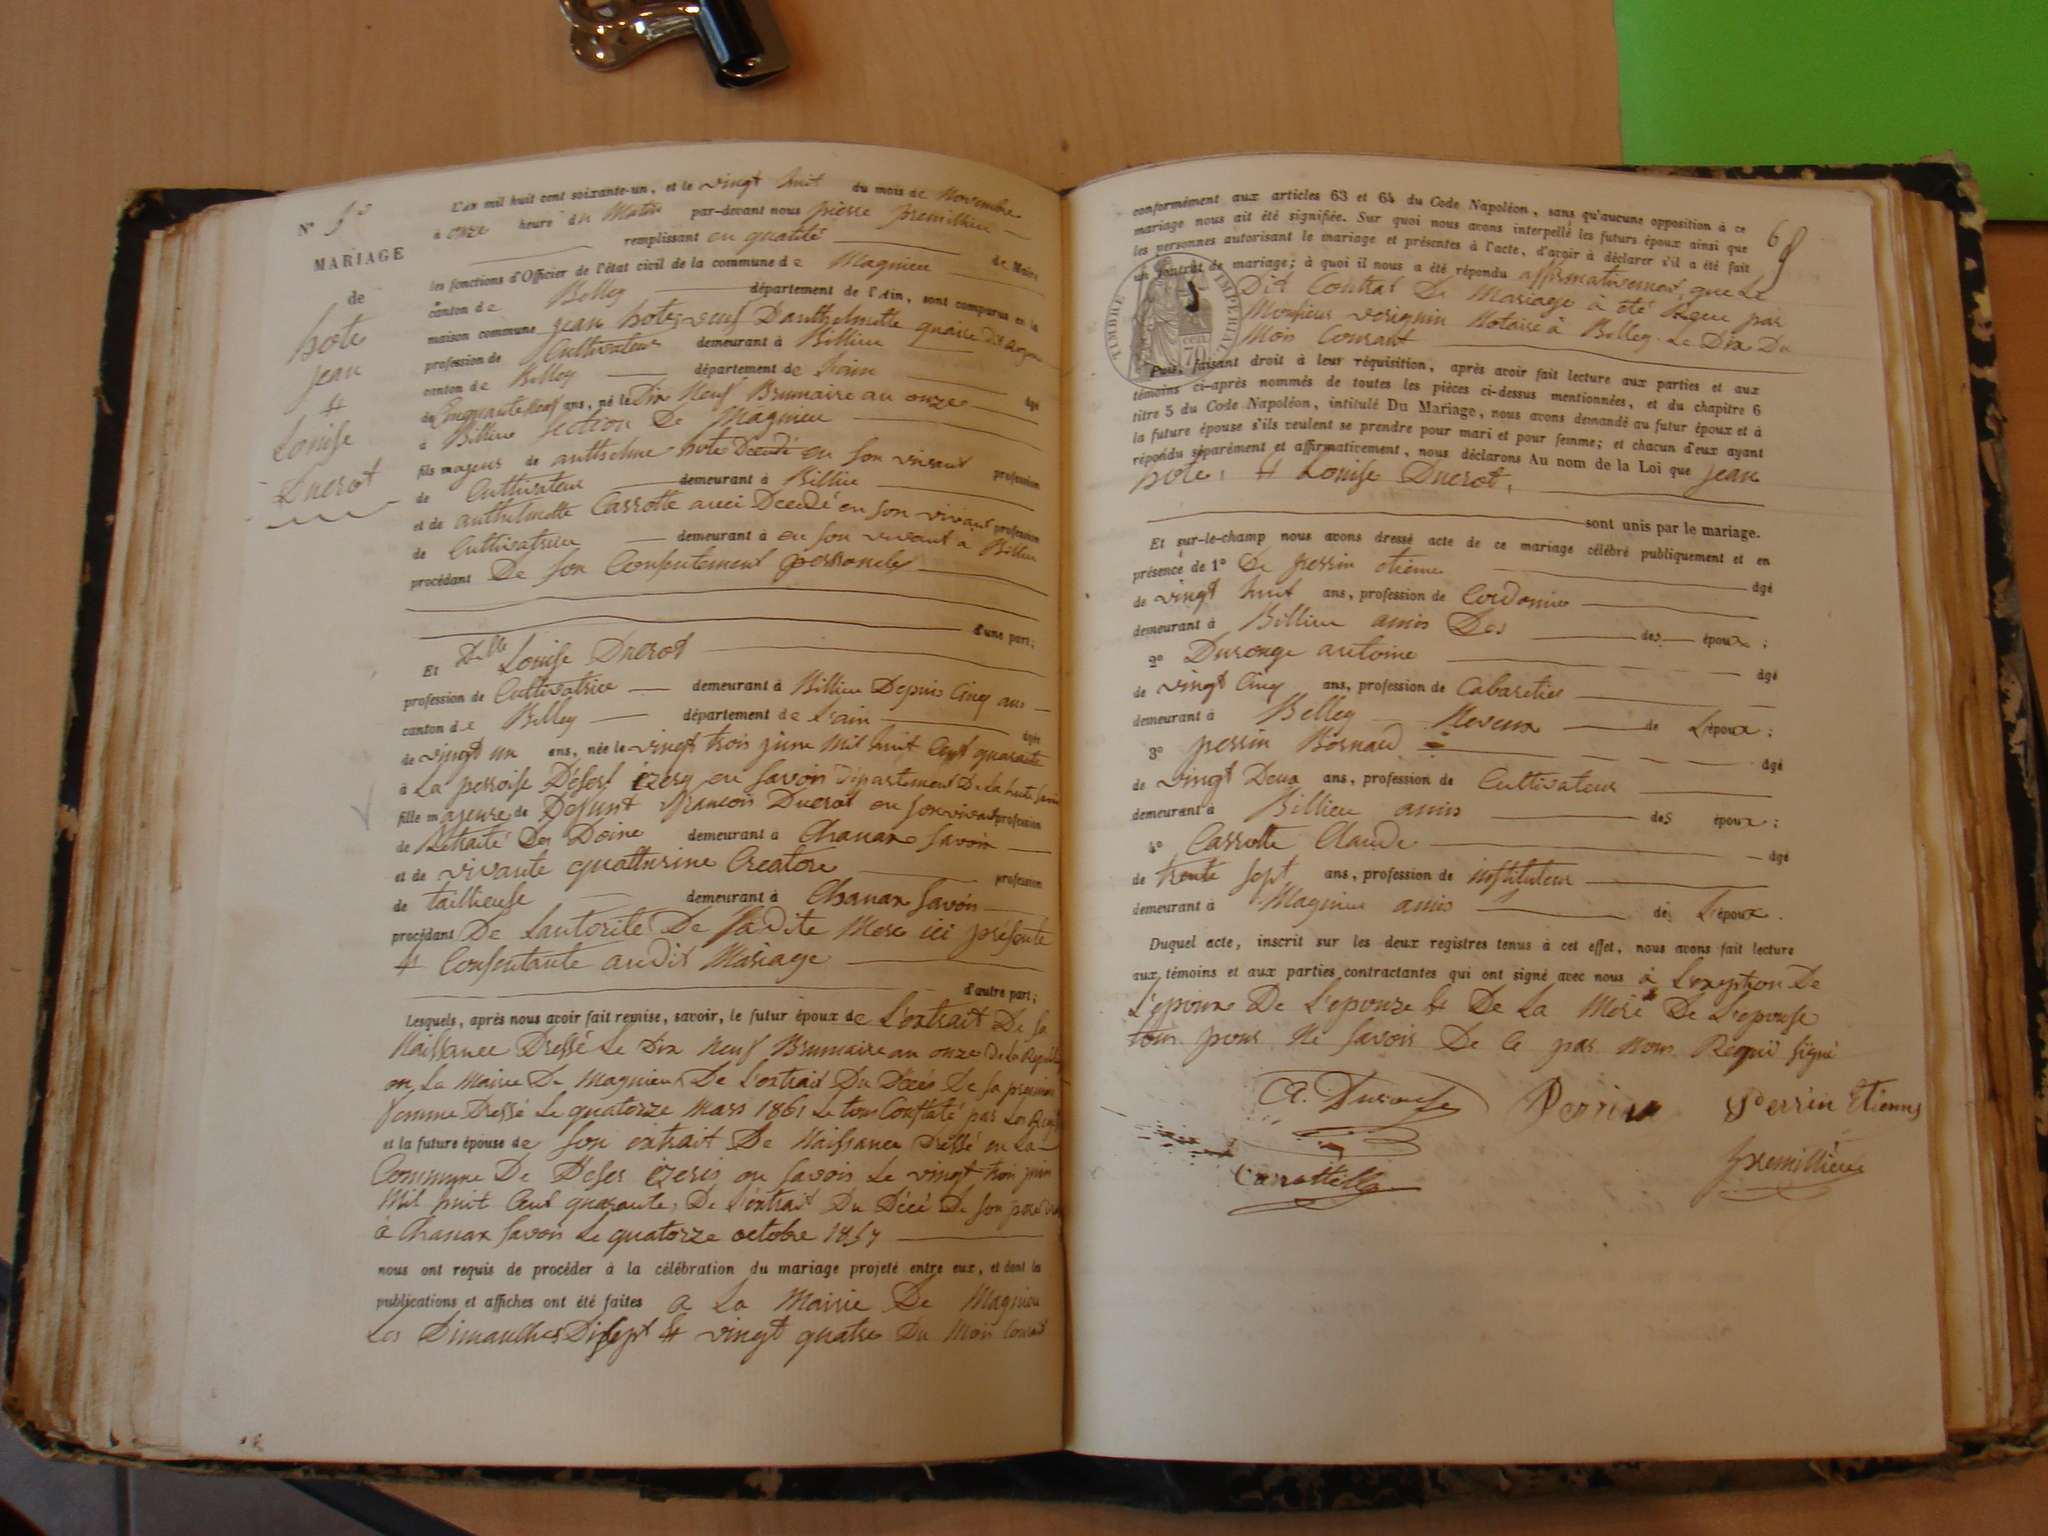 N° 5
MARIAGE
de
hote
jean
et
Louise
Ducrot
L'AN mil huit cent soixante-un, et le vingt huit du mois de Novembre
à onze heure du Matin par-devant nous pierre premillieu
remplissant en qualité de Maire
les fonctions d'Officier de l'état civil de la commune de Magnieu
canton de Belley département de l'Ain, sont comparus en la
maison commune jean hote veuf Danthelmette
profession de Cultivateur demeurant à Billieu
canton de Belley département de Lain âgé
de Cinquante Neuf ans, né le Dix Neuf Brumaire an onze
à Billieu section De Magnieu
fils majeur de anthelme hote Décédé en Son vivant profession
de Cultivateur demeurant à Billieu
et de anthelmette Carrotte auci Décédé en Son vivant profession
de Cultivatrice demeurant à en Son vivant a Billieu
procédant De Son Consentement personele
d'une part;
Et Delle Louise Ducrot
profession de Cultivatrice demeurant à Billieu Depuis Cinq ans
canton de Belley département de Lain âgée
de vingt un ans, née le vingt trois juin Mil huit Cent quarante
à La perroise Déserl izery en Savoir Département De La hute Savoir
fille majeure de Défunt françois Ducrot en Son vivant profession
de Retraité Des Doine demeurant à Chanax Savoir
et de vivante quatturine Creatore profession
de tailleuse demeurant à Chanax Savoir
procédant De Lautorité De Sadite Mere ici présente
et Consentante audit Mariage
d'autre part;
Lesquels, après nous avoir fait remise, savoir, le futur époux de L'extrait De Sa
Naissance Dressé Le Dix Neuf Brumaire an onze De La Republi
en La Mairie De Magnieu, De L'extrait Du Décés De Sa premiere
femme Dressé Le quatorze Mars 1861 Le tout Constaté par Les Regis
et la future épouse de Son extrait De Naissance Dressé en La
Commune De Déser izeris en Savoir Le vingt trois juin
Mil huit Cent quarante, De L'extrait Du Décé De Son pere
à Chanax Savoir Le quatorze octobre 1857
nous ont requis de procéder à la célébration du mariage projeté entre eux, et dont les
publications et affiches ont été faites a La Mairie De Magnieu
Les Dimanches Disept et vingt quatre Du Mois Courant
68
conformément aux articles 63 et 64 du Code Napoléon, sans qu'aucune opposition à ce
mariage nous ait été signifiée. Sur quoi nous avons interpellé les futurs époux ainsi que
les personnes autorisant le mariage et présentes à l'acte, d'avoir à déclarer s'il a été fait
un contrat de mariage; à quoi il nous a été répondu affirmativement que Le
Dit Contrat De Mariage à été Reçu par
Monsieur verignin Notaire à Belley Le Dix Du
Mois Courant
TIMBRE IMPERIAL
70 cen
Puis, faisant droit à leur réquisition, après avoir fait lecture aux parties et aux
témoins ci-après nommés de toutes les pièces ci-dessus mentionnées, et du chapitre 6
titre 5 du Code Napoléon, intitulé Du Mariage, nous avons demandé au futur époux et à
la future épouse s'ils veulent se prendre pour mari et pour femme; et chacun d'eux ayant
répondu séparément et affirmativement, nous déclarons Au nom de la Loi que jean
hote, et Louise Ducrot,
sont unis par le mariage.
Et sur-le-champ nous avons dressé acte de ce mariage célébré publiquement et en
présence de 1° De perrin etienne âgé
de vingt huit ans, profession de Cordonnier
demeurant à Billieu amis Des des époux;
2° Duronge antoine âgé
de vingt Cinq ans, profession de Cabaretier
demeurant à Belley Neveux de L'époux;
3° perrin Bernard âgé
de vingt Deux ans, profession de Cultivateur
demeurant à Billieu amis des époux;
4° Carrotte Claude âgé
de trente Sept ans, profession de instituteur
demeurant à Magnieu amis de L'époux.
Duquel acte, inscrit sur les deux registres tenus à cet effet, nous avons fait lecture
aux témoins et aux parties contractantes qui ont signé avec nous à L'exeption De
L'epoux De L'epouze et De La Mere De L'epouse
tous pour Ne Savoir De Ce par Nous Requi Signé
A. Duronge Perrin Perrin Etienne
Carrotte premillieu